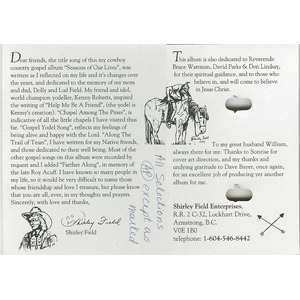 Dear friends, the title song of this my cowboy
country gospel album "Seasons of Our Lives", was
written as I reflected on my life and it's changes over
the years, and dedicated to the memory of my mom
and dad, Dolly and Lud Field. My friend and idol,
world champion yodeller, Kenny Roberts, inspired
the writing of "Help Me Be A Friend", (the yodel is
Kenny's creation). "Chapel Among The Pines", is
indicative of all the little chapels I have visited thus
far. "Gospel Yodel Song", reflects my feelings of
being alive and happy with the Lord. "Along The
Trail of Tears", I have written for my Native friends,
and those dedicated to their well being. Most of the
other gospel songs on this album were recorded by
request and I added "Farther Along", in memory of
the late Roy Acuff. I have known so many people in
my life, so it would be very difficult to name those
whose friendship and love I treasure, but please know
that you are all, ever, in my thoughts and prayers.
Sincerely, with love and thanks,
Shirley Field
Shirley Field
All Selections
GP except as
marked
This album is also dedicated to Reverends:
Bruce Wartman, David Parks & Don Lindsay,
for their spiritual guidance, and to those who
believe in, and will come to believe
in Jesus Christ.
To my great husband William,
always there for me. Thanks to Sonrise for
covert art direction, and my thanks and
undying gratitude to Dave Brett, once again
for an excellent job of producing yet another
album for me.
Shirley Field Enterprises,
R.R. 2 C-32, Lockhart Drive,
Armstrong, B.C.
V0E 1B0
telephone: 1-604-546-8442